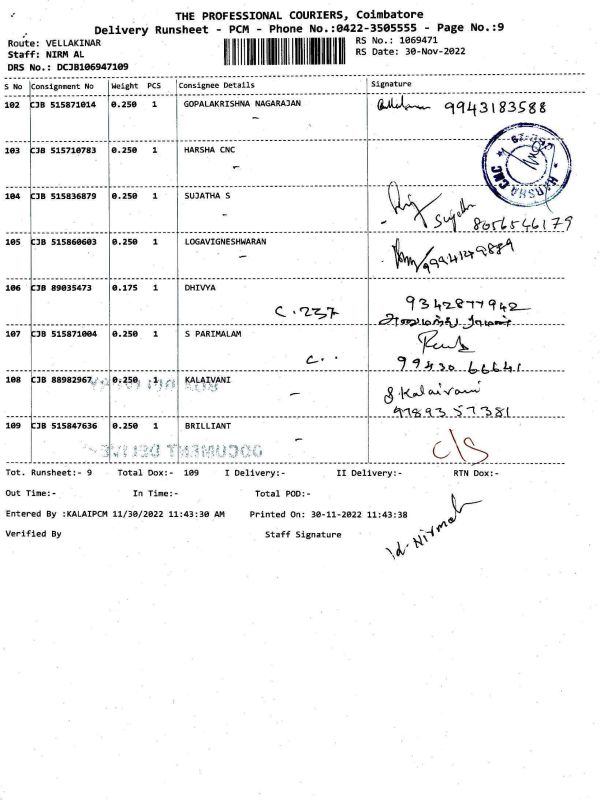 THE PROFESSIONAL COURIERS, Coimbatore
Delivery Runsheet - PCM - Phone No.:0422-3505555 - Page No.:9
Route: VELLAKINAR
RS No.: 1069471
Staff: NIRM AL
RS Date: 30-Nov-2022
DRS No.: DCJB106947109
S No Consignment No Weight PCS Consignee Details Signature
102 CJB 515871014 0.250 1 GOPALAKRISHNA NAGARAJAN 9943183588
103 CJB 515710783 0.250 1 HARSHA CNC
HARSHA CNC
104 CJB 515836879 0.250 1 SUJATHA S
Sujatha 8056546179
105 CJB 515860603 0.250 1 LOGAVIGNESHWARAN
9994149889
106 CJB 89035473 0.175 1 DHIVYA
C.237 9342877942
107 CJB 515871004 0.250 1 S PARIMALAM
C.. 99430 66641
108 CJB 88982967 0.250 1 KALAIVANI
S.Kalaivani
97893 57381
109 CJB 515847636 0.250 1 BRILLIANT
C/S
Tot. Runsheet:- 9 Total Dox:- 109 I Delivery:- II Delivery:- RTN Dox:-
Out Time:- In Time:- Total POD:-
Entered By :KALAIPCM 11/30/2022 11:43:30 AM Printed On: 30-11-2022 11:43:38
Verified By Staff Signature
Id-Nirmal